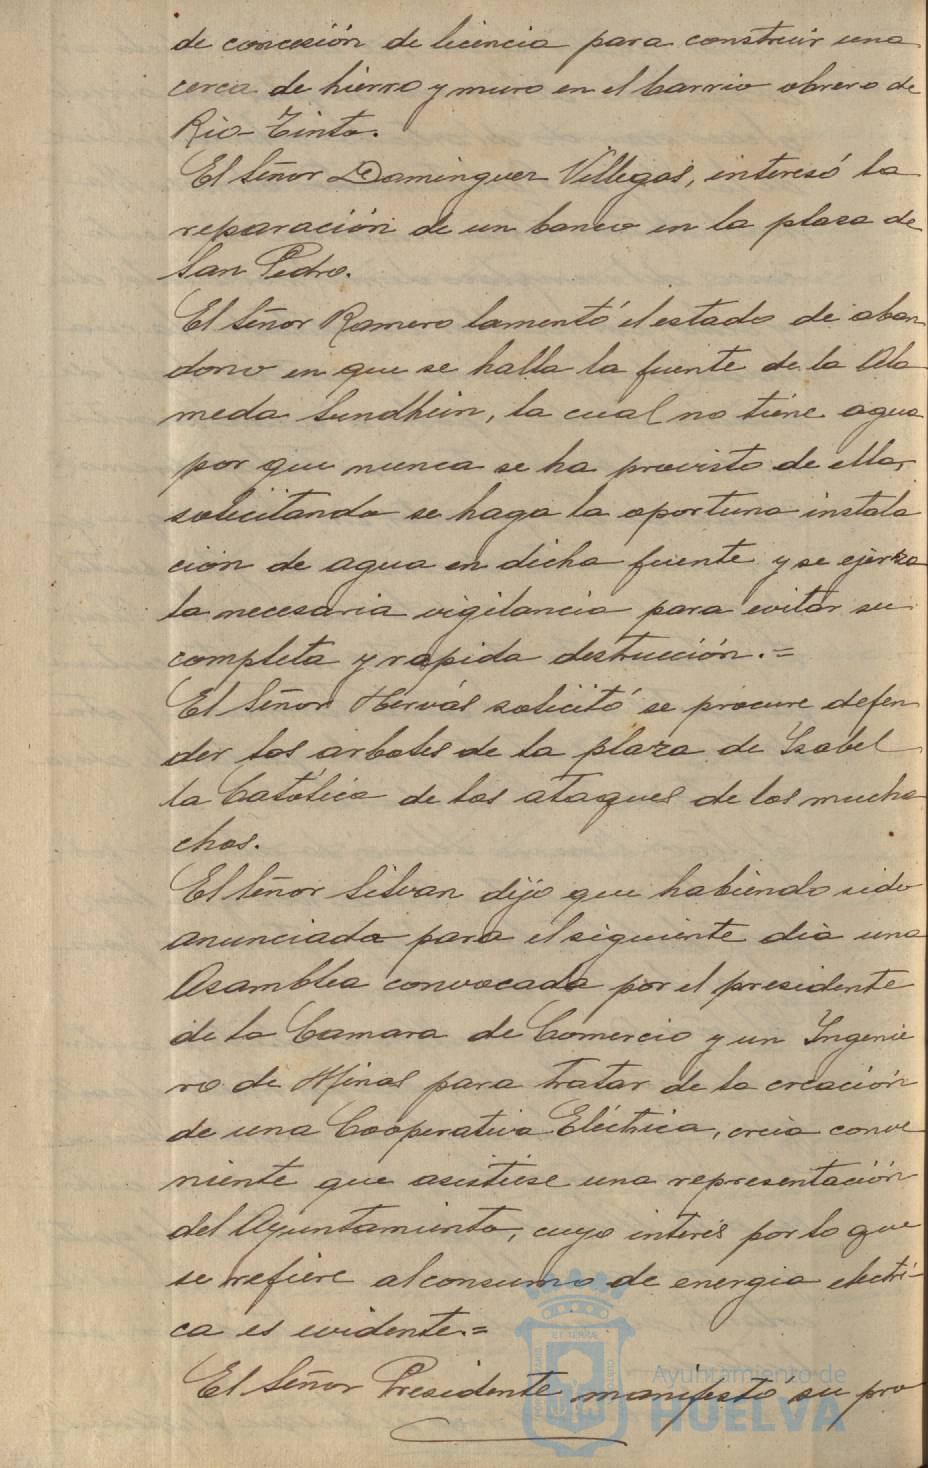 de concesión de licencia para construir una
cerca de hierro y muro en el barrio obrero de
Rio-Tinto.
El Señor Dominguez Villegas, interesó la
reparación de un banco en la plaza de
San Pedro.
El Señor Romero lamentó el estado de aban
dono en que se halla la fuente de la Ala
meda Sundhein, la cual no tiene agua
por que nunca se ha provisto de ella,
solicitando se haga la oportuna instala
ción de agua en dicha fuente y se ejerza
la necesaria vigilancia para evitar su
completa y rapida destrucción.=
El Señor Hervás solicitó se procure defen
der los arboles de la plaza de Isabel
la Católica de los ataques de los mucha
chos.
El Señor Silvan dijo que habiendo sido
anunciada para el siguiente dia una
Asamblea convocada por el presidente
de la Camara de Comercio y un Ingenie
ro de Minas para tratar de la creación
de una Cooperativa Eléctrica, creia conve
niente que asistiese una representación
del Ayuntamiento, cuyo interés por lo que
se refiere al consumo de energia electri-
ca es evidente.=
El Señor Presidente manifestó su pro
Ayuntamiento de
HUELVA